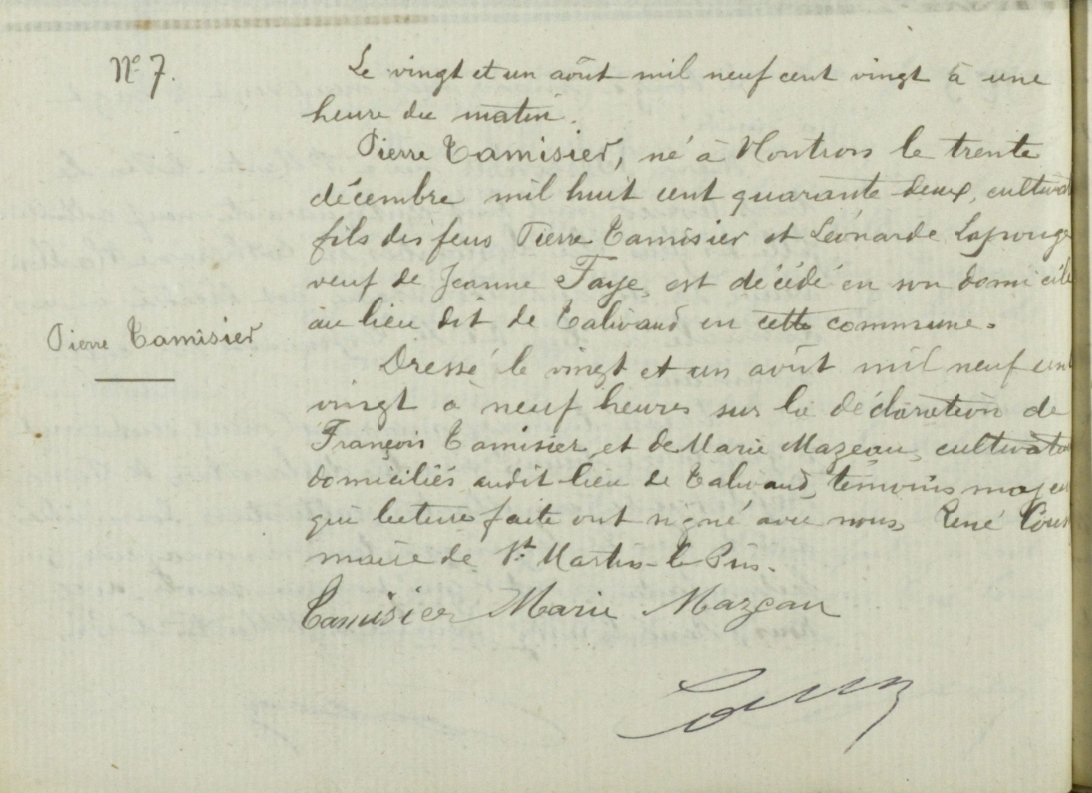 N° 7.
Le vingt et un août mil neuf cent vingt à une
heure du matin.
Pierre Tamisier, né à Montrois le trente
décembre mil huit cent quarante deux, cultivat
fils des feus Pierre Tamisier et Léonarde Laponge
veuf de Jeanne Faye est décédé en son domicile
au lieu dit de Talivaud en cette commune.
Pierre Tamisier
Dressé le vingt et un août mil neuf cent
vingt à neuf heures sur la déclaration de
François Tamisier et de Marie Mazeau, cultivateu
domiciliés audit lieu de Talivaud, témoins majeu
qui lecture faite ont signé avec nous René
maire de St Martin-le Pin.
Tamisier Marie Mazeau